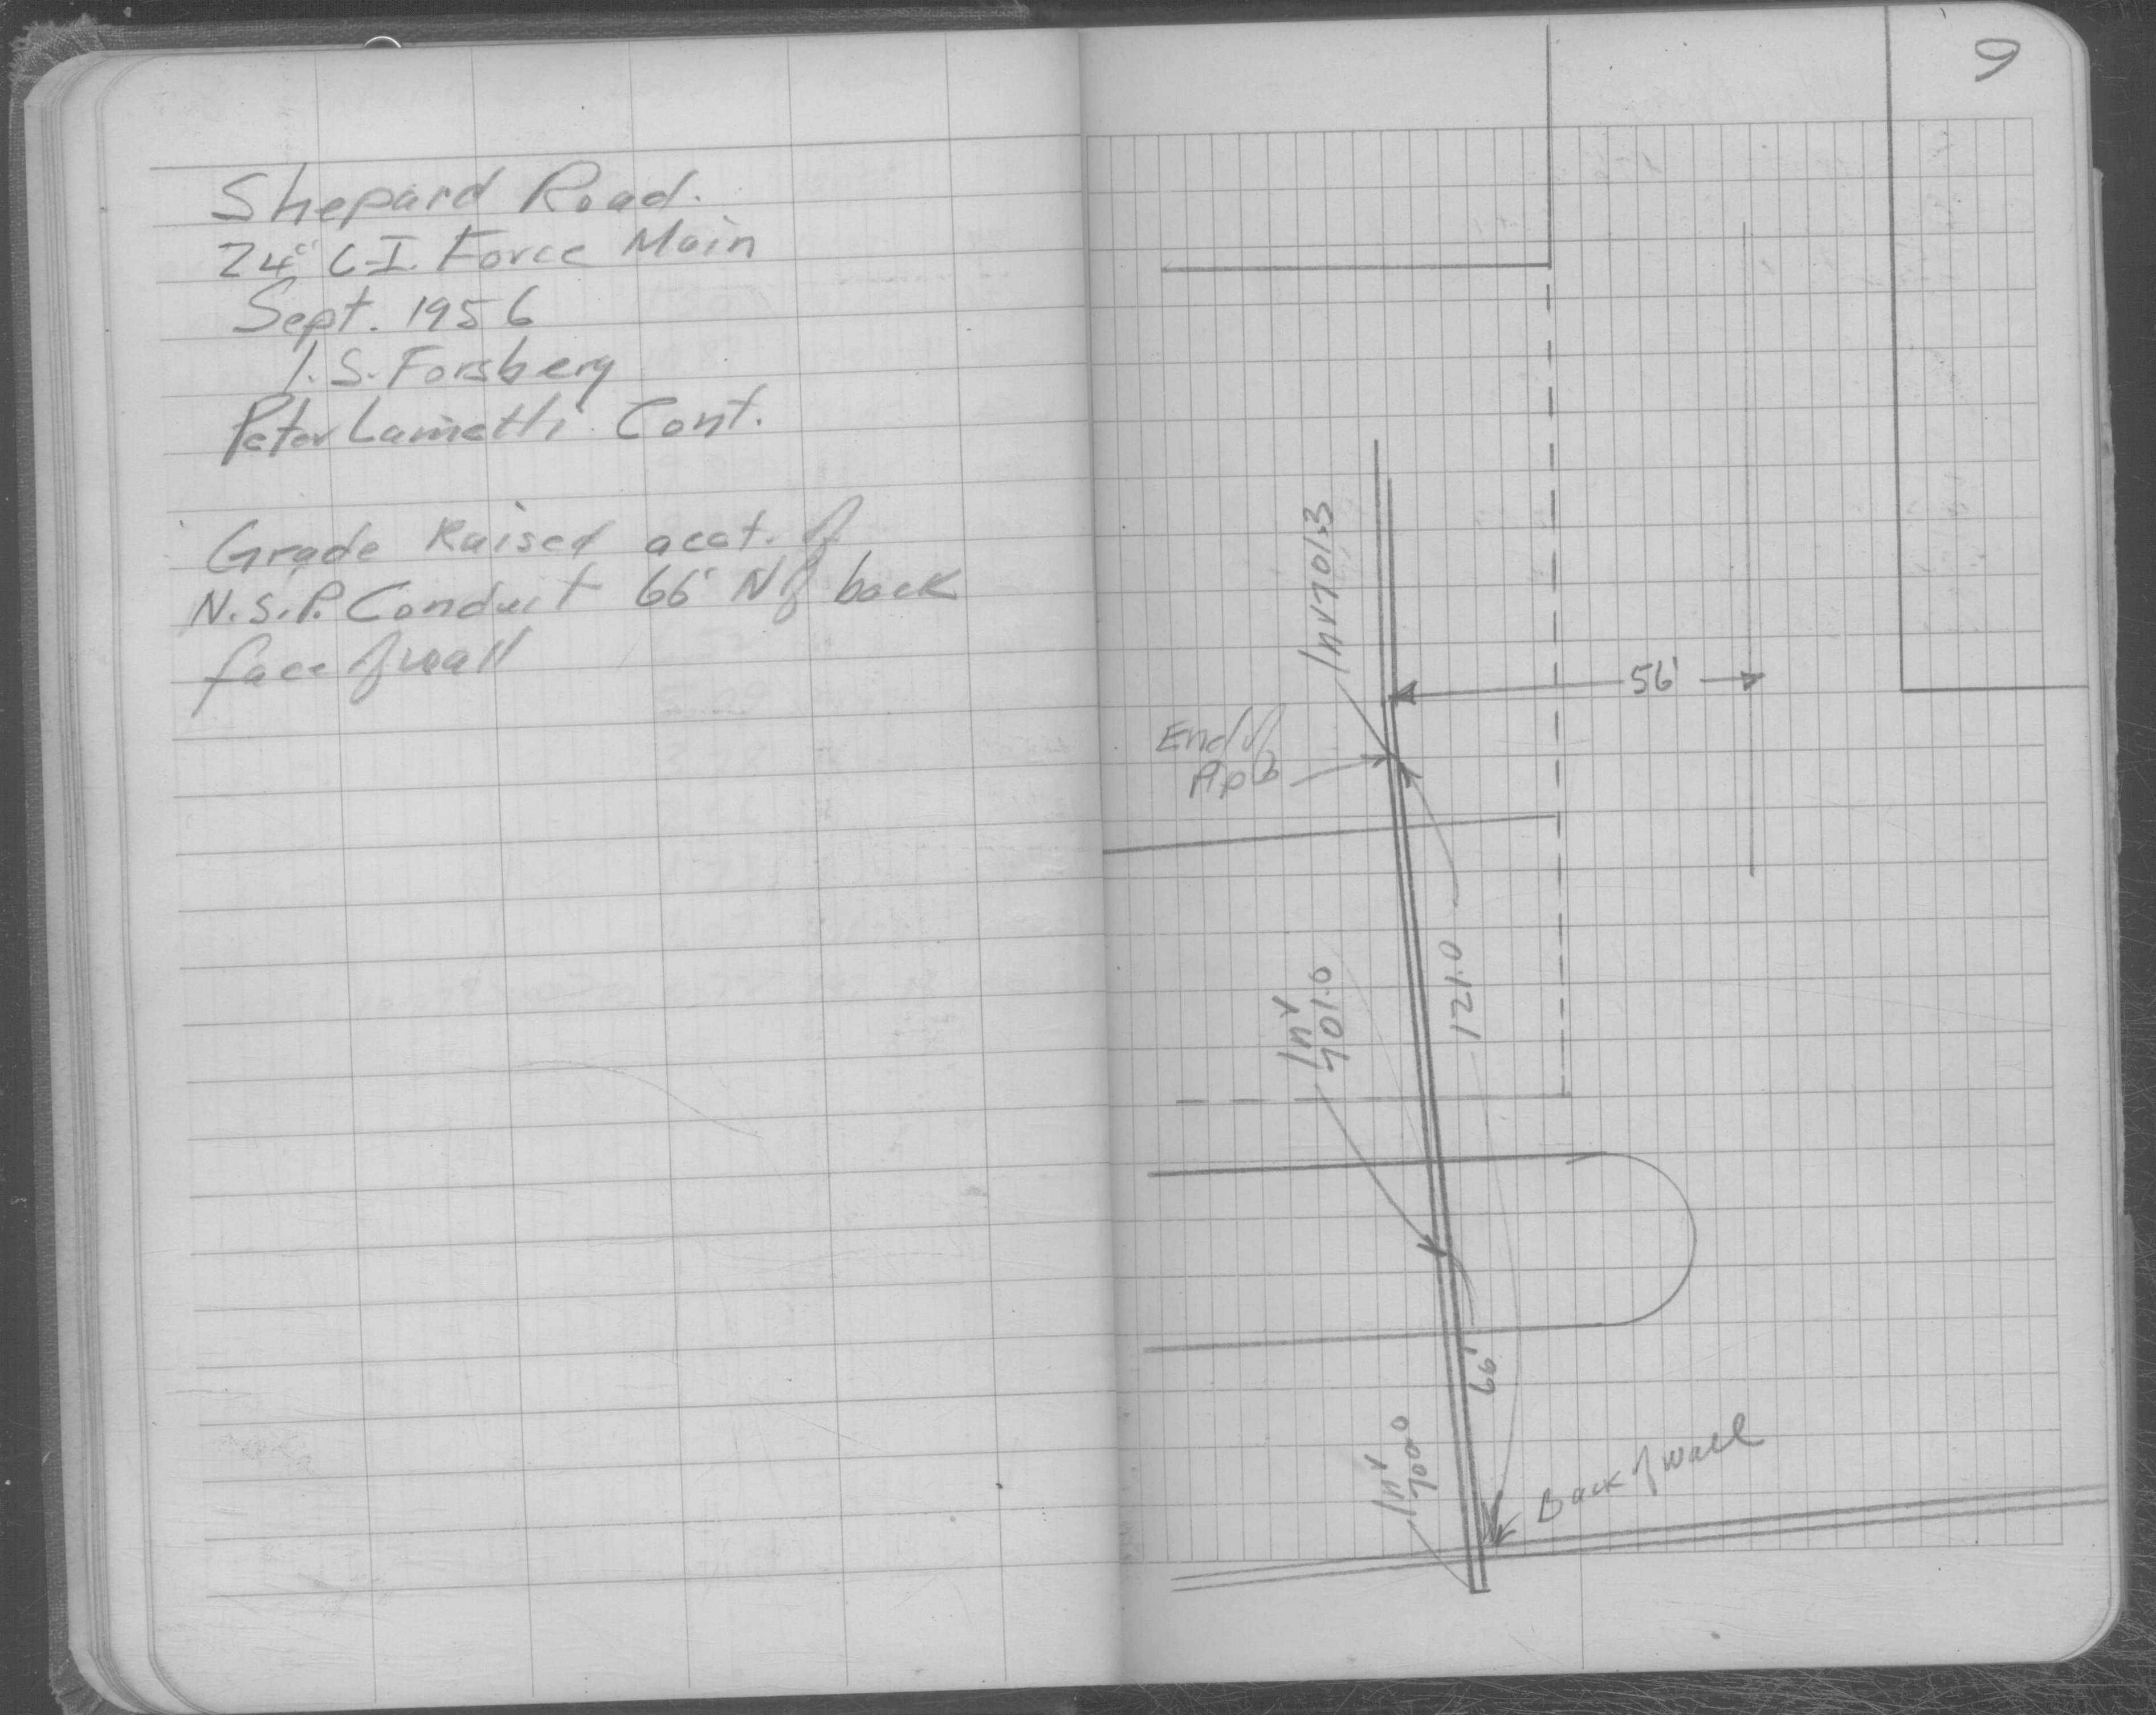 Shepard Road.
24" C.I. Force Main
Sept. 1956
I. S. Forsberg
Peter Lametti Cont.
Grade Raised acct. of
N.S.P. Conduit 66' N of back
face of wall
9
Inv 701.3
56'
End of
Inv
701.0
121.0
66'
Inv
700.0
Back of wall